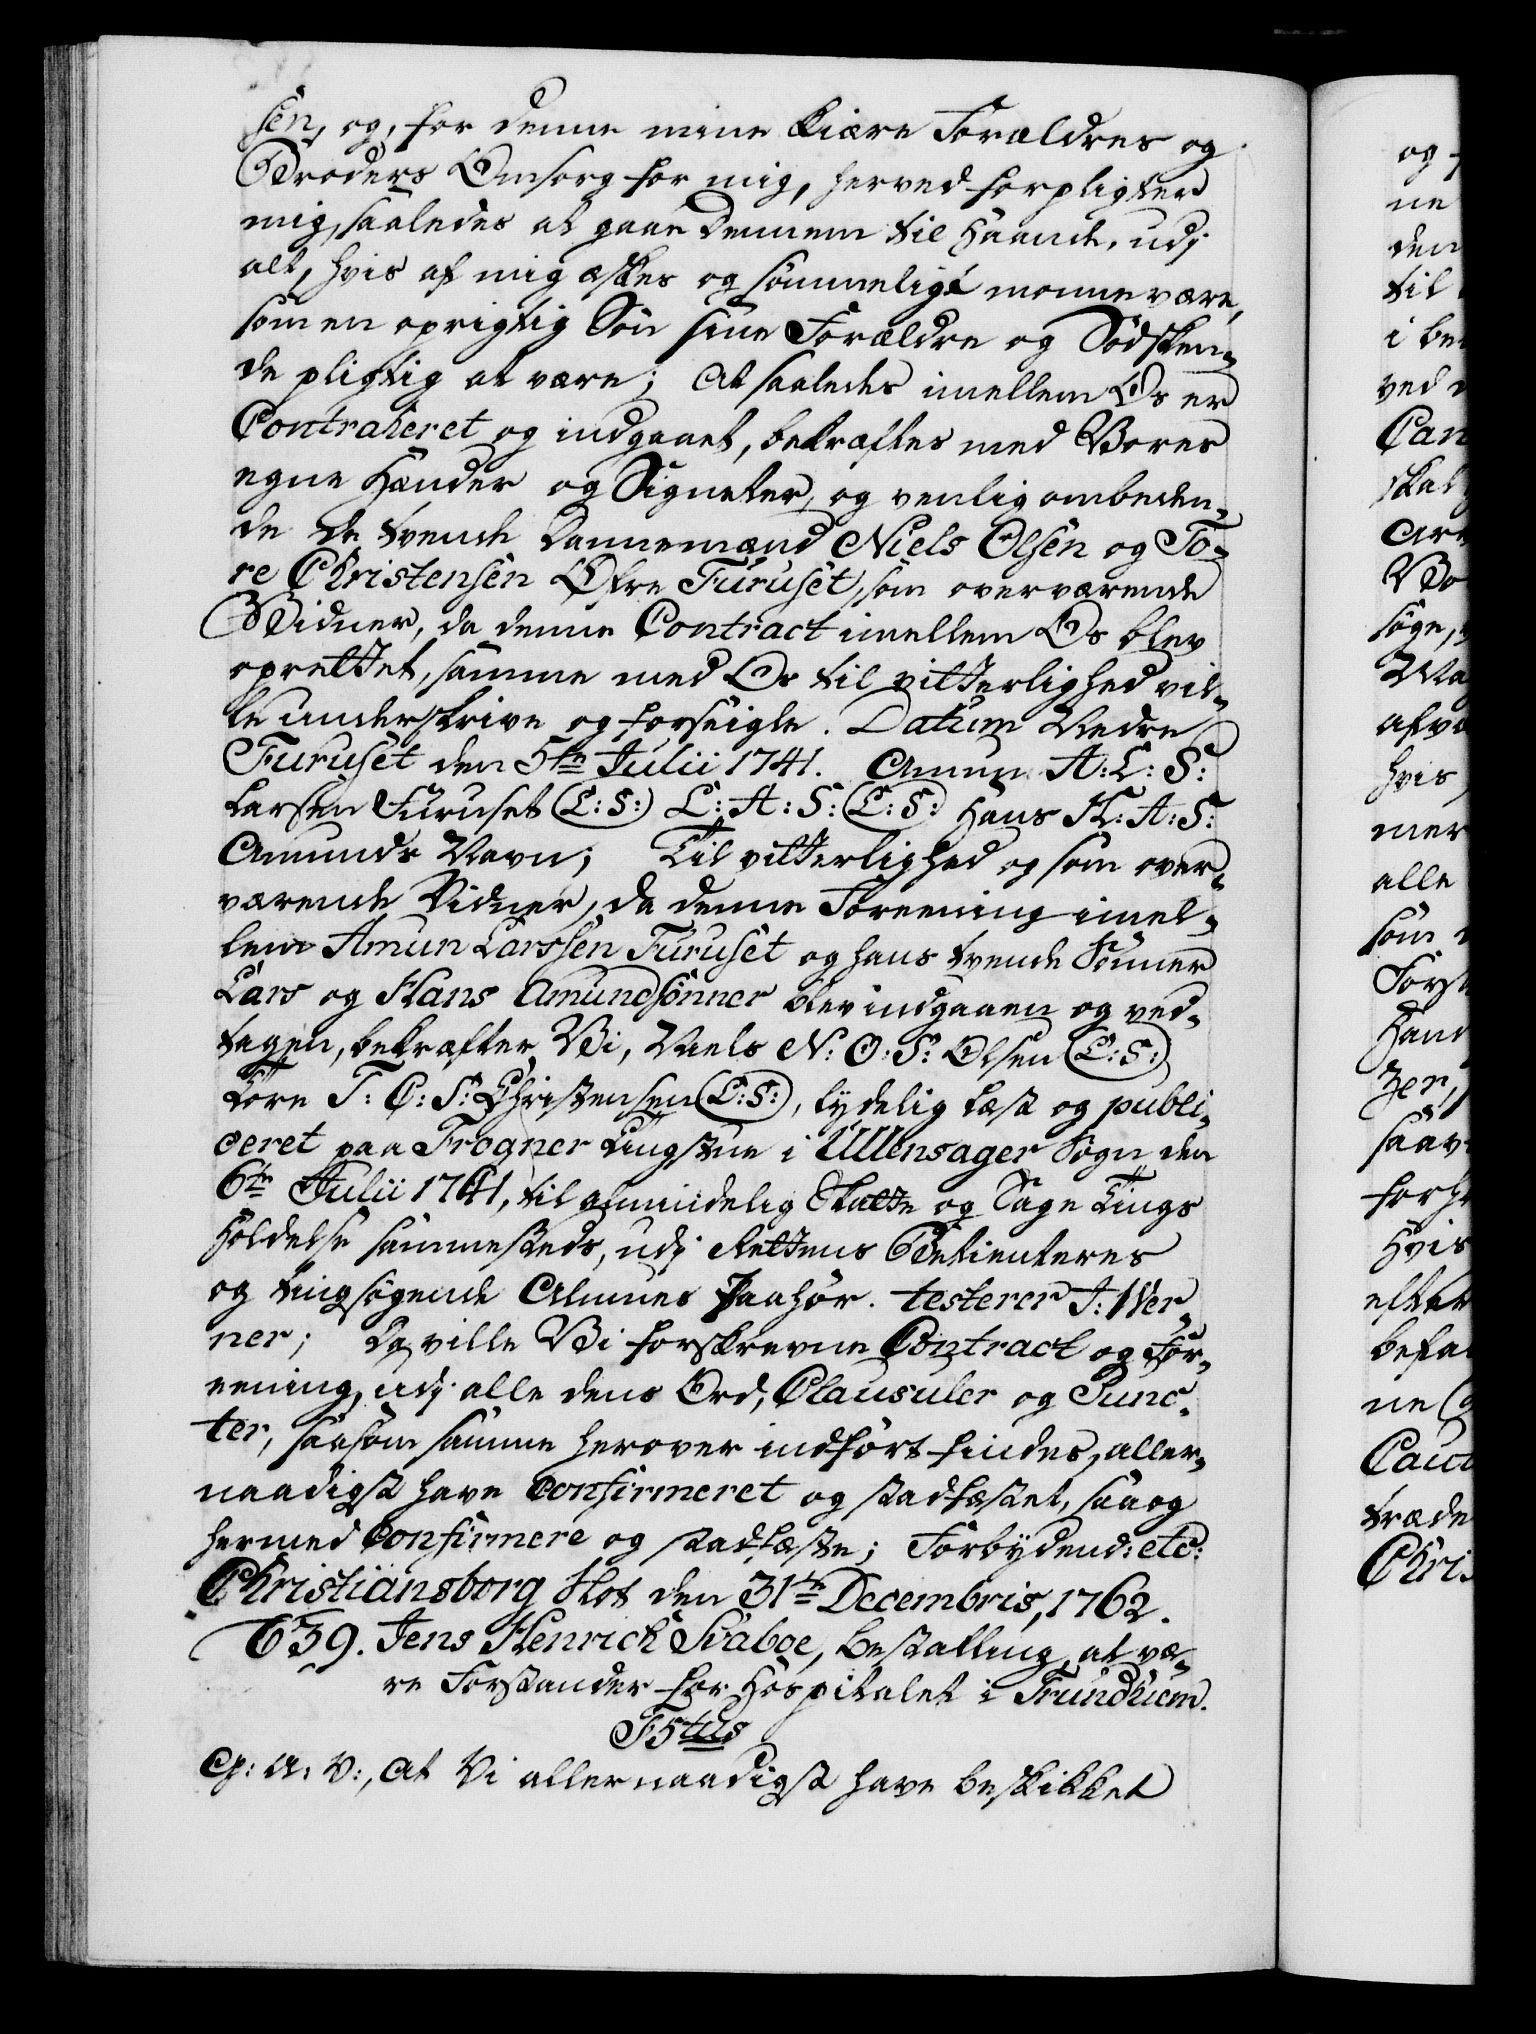 sen, og, for denne mine kiære Forældres og
Broders Omsorg for mig, herved forpligter
mig, saaledes at gaae dennem til Haande, udj
alt, hvis af mig æskes og sømmeligt monne være,
som en oprigtig Søn sine Forældre og Sødsken-
de pligtig at være; At saaledes imellem Os er
Contraheret og indgaaet, bekræftes med Vores
egne Hænder og Signeter, og venlig ombeden-
de de tvende Dannemænd Niels Olsen og To-
re Christensen Øfre Furuset, som overværende
Vidner, da denne Contract imellem Os blev
oprettet, samme med Os til vitterlighed vil-
le underskrive og forseigle. Datum Nedre
Furuset den 5te Julii 1741. Amun A: L: S:
Larsen Furuset (L: S:) L: A: S: (L: S:) Hans H: A: S:
Amunds Navn; Til vitterlighed og som over-
værende Vidner, da denne Foreening imel-
lem Amun Larssen Furuset og hans tvende Sønner
Lars og Hans Amundsønner blev indgaaen og ved-
tagen, bekræfter Vi, Niels N: O: S: Olsen (L: S:)
Tore T: C: S: Christensen (L: S:), lydelig læst og publi-
ceret paa Frogner Tingstue i Ullensager Sogn den
6te Julii 1741, til almindelig Skatte og Sage Tings
Holdelse sammesteds, udj Rettens Betienteres
og tingsøgende Almues Paahør. testerer J: Wer-
ner; Da ville Vi forskrevne Contract og For-
eening, udj alle dens Ord, Clausuler og Punc-
ter, saasom samme herover indført findes, aller-
naadigst have Confirmeret og stadfæstet, saa og
hermed Confirmere og stadfæste; Forbydend: etc:
Christiansborg Slot den 31te Decembris, 1762.
639. Jens Henrich Svaboe, bestalling, at væ-
re Forstander for Hospitalet i Trundhiem.
F5tus
G: A: V:, At Vi allernaadigst have beskikket